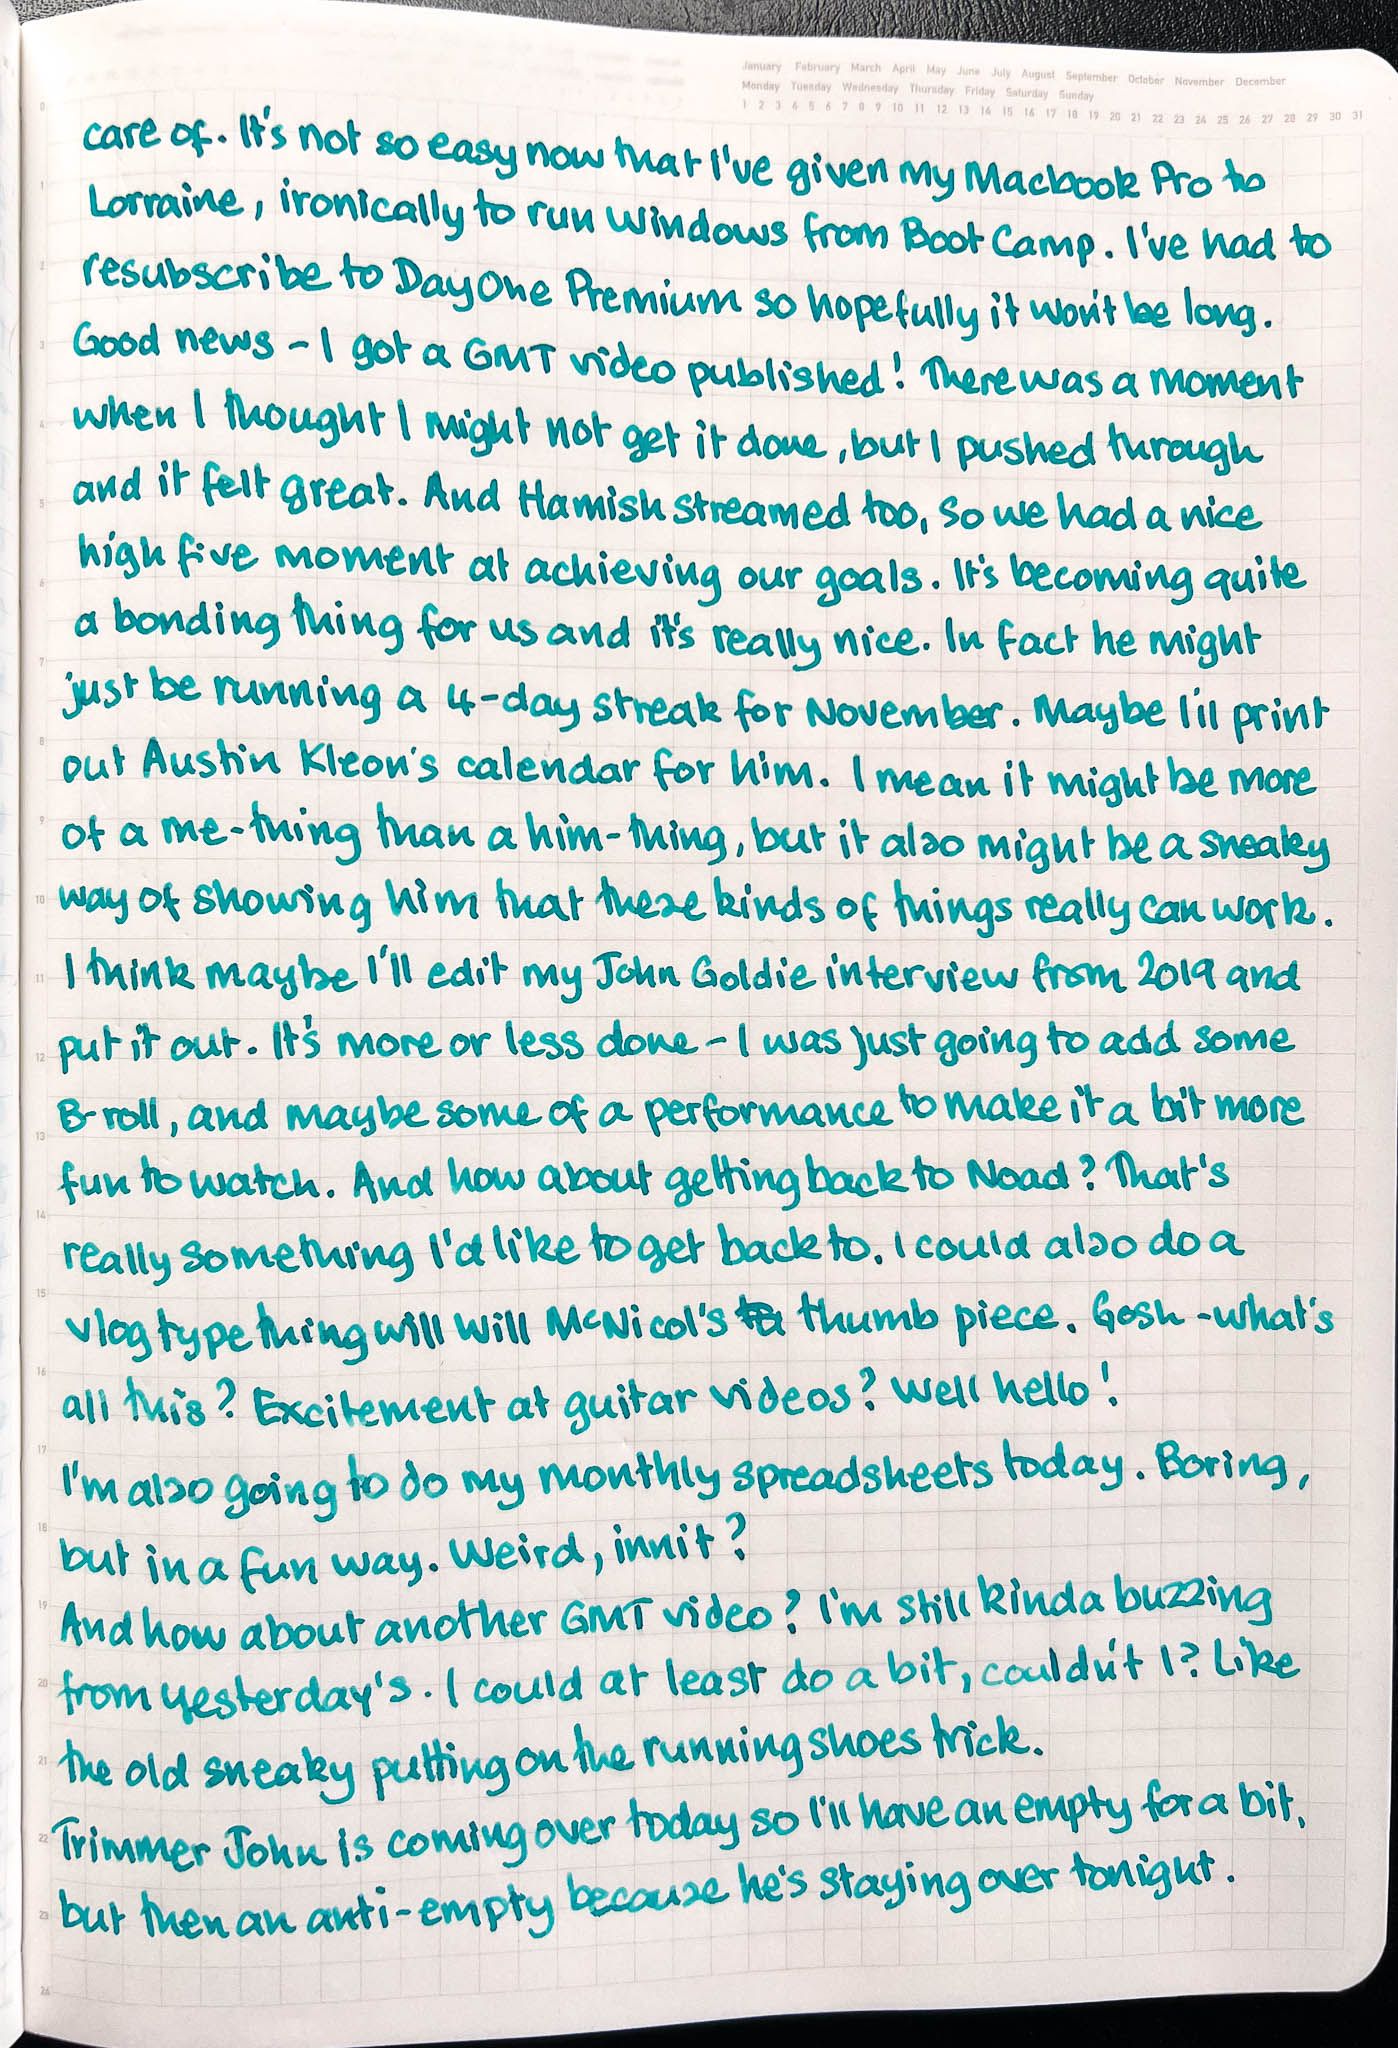 January February March April May June July August September October November December
Monday Tuesday Wednesday Thursday Friday Saturday Sunday
1 2 3 4 5 6 7 8 9 10 11 12 13 14 15 16 17 18 19 20 21 22 23 24 25 26 27 28 29 30 31
0
care of. It's not so easy now that I've given my Macbook Pro to
1
Lorraine, ironically to run Windows from Boot Camp. I've had to
2
resubscribe to DayOne Premium so hopefully it won't be long.
3
Good news - I got a GMT video published! There was a moment
4
when I thought I might not get it done, but I pushed through
5
and it felt great. And Hamish streamed too, so we had a nice
high five moment at achieving our goals. It's becoming quite
6
a bonding thing for us and it's really nice. In fact he might
7
just be running a 4-day streak for November. Maybe I'll print
8
out Austin Kleon's calendar for him. I mean it might be more
9
of a me-thing than a him-thing, but it also might be a sneaky
10
way of showing him that these kinds of things really can work.
11
I think maybe I'll edit my John Goldie interview from 2019 and
12
put it out. It's more or less done - I was just going to add some
B-roll, and maybe some of a performance to make it a bit more
13
fun to watch. And how about getting back to Noad? That's
14
really something I'd like to get back to. I could also do a
15
vlog type thing will Will McNicol's thumb piece. Gosh - what's
16
all this? Excitement at guitar videos? Well hello!
17
I'm also going to do my monthly spreadsheets today. Boring,
18
but in a fun way. Weird, innit?
19
And how about another GMT video? I'm still kinda buzzing
20
from yesterday's. I could at least do a bit, couldn't I? Like
21
the old sneaky putting on the running shoes trick.
22
Trimmer John is coming over today so I'll have an empty for a bit,
23
but then an anti-empty because he's staying over tonight.
24